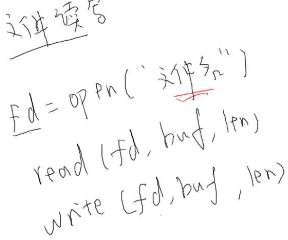 文件读写
fd = open("文件名")
read (fd, buf, len)
write (fd, buf, len)